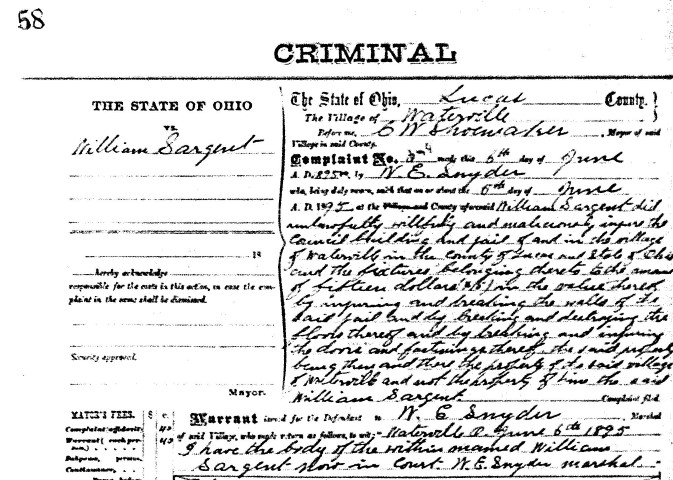 58
CRIMINAL
THE STATE OF OHIO
vs.
William Sargent
18
hereby acknowledge
responsible for the costs in this action, in case the com-
plaint in the same shall be dismissed.
Security approved.
Mayor.
The State of Ohio, Lucas County. }
The Village of Waterville }
Before me, C W Shoemaker, Mayor of said
Village in said County.
Complaint No. made this 6th day of June
A. D. 1895, by W. E. Snyder
who, being duly sworn, saith that on or about the 6th day of June
A. D. 1895 at the Village and County aforesaid William Sargent did
unlawfully willfully and maliciously injure the
Council building and jail of and in the village
of Waterville in the County of Lucas and State of Ohio
and the fixtures belonging thereto to the amount
of fifteen dollars in the value thereof
by injuring and breaking the walls of its
said jail and by breaking and destroying the
floors thereof and by breaking and injuring
the doors and fastenings thereof, the said property
being then and there the property of its said village
of Waterville and not the property of him the said
William Sargent Complaint filed.
MAYOR'S FEES. $ c.
Complaint affidavit,
Warrant (each per-
son,)
Subpœna, persons,
Continuance,
Warrant issued for the Defendant to W. E Snyder Marshal
of said Village, who made return as follows, to wit: "Waterville O. June 6th 1895
I have the body of the within named William
Sargent now in Court. W. E. Snyder marshal